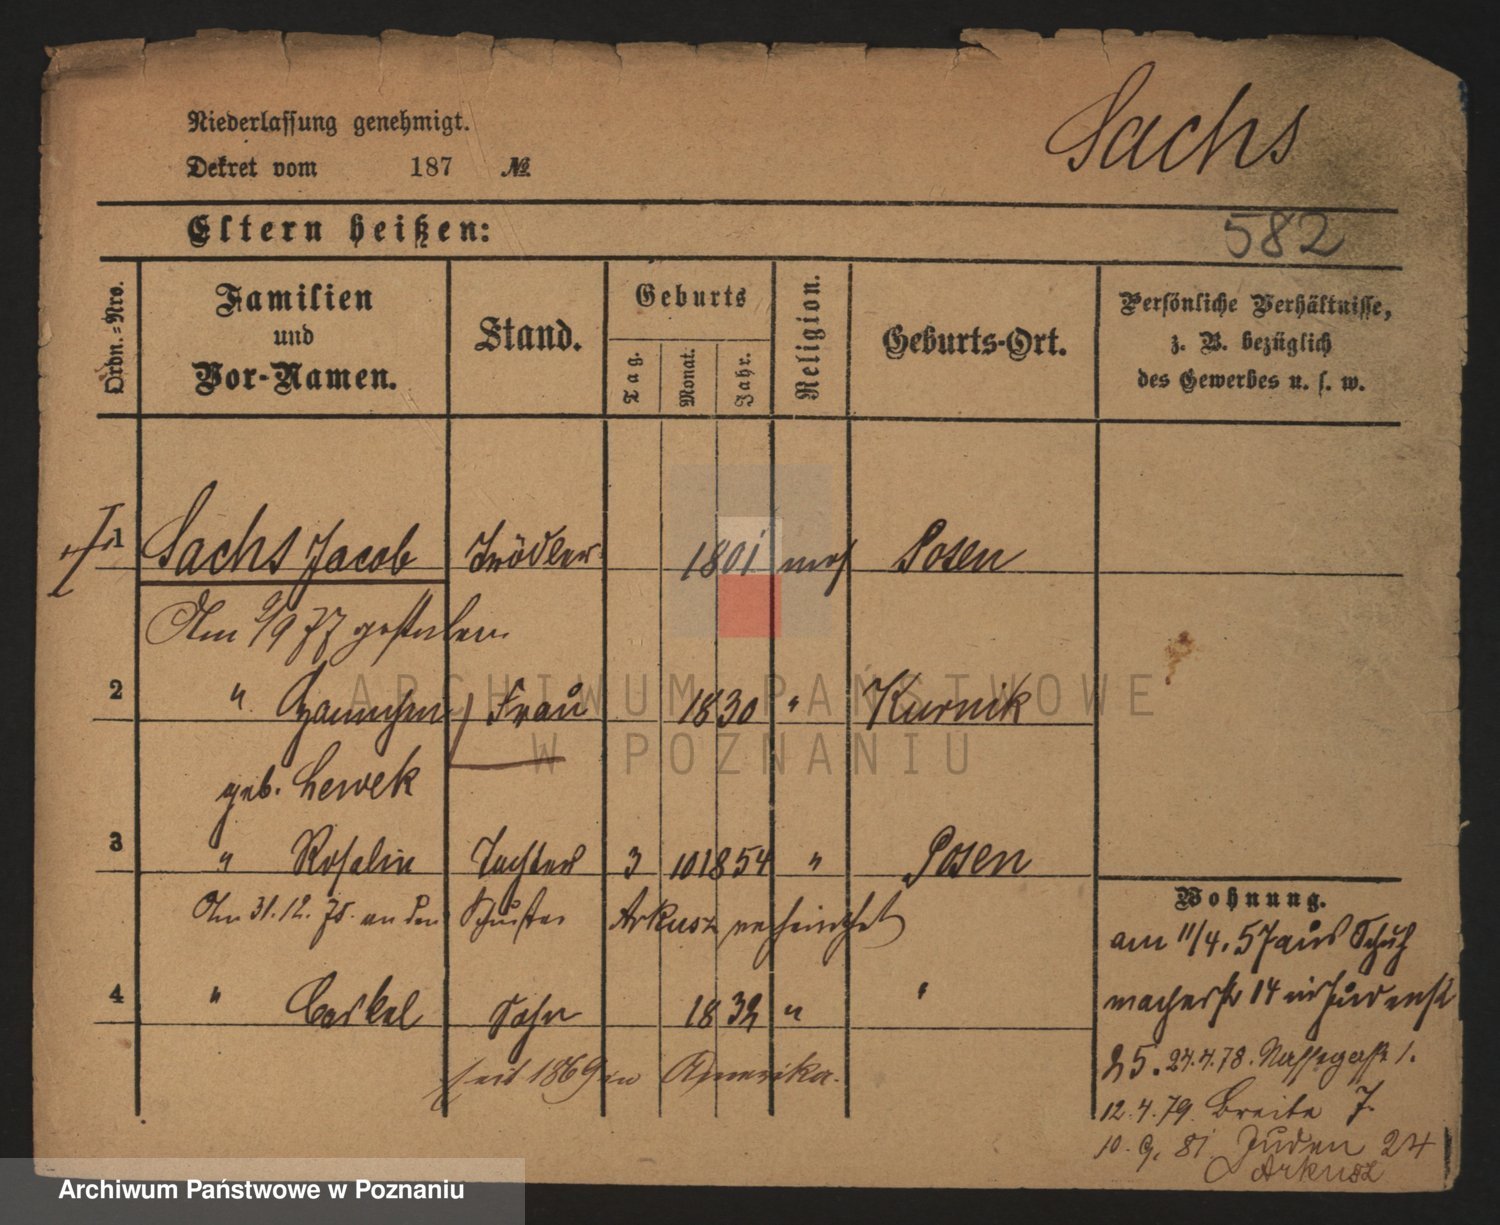 Niederlassung genehmigt.
Dekret vom 187 №
Sachs
Eltern heißen:
582
Ordn.=Nro.
Familien
und
Vor-Namen.
Stand.
Geburts
Tag.
Monat.
Jahr.
Religion.
Geburts-Ort.
Persönliche Verhältnisse,
z. B. bezüglich
des Gewerbes u. s. w.
1 Sachs Jacob Trödler 1801 mos Posen
Am 9/9 77 gestorben
2 " Hannchen Frau 1830 " Kurnik
geb. Lewek
3 " Rosalie Tochter 3 10 1854 " Posen
Am 31.12.75. an den Schuster Arkusz verheirathet
4 " Caskel Sohn 1832 " "
seit 1869 in Amerika.
Wohnung.
am 11/4.57 aus Schuh
macherstr 14 Judenst
25. 24.4.78. Nassegasse 1.
12.4.79. Breite 7.
10. 9. 81. Juden 24
Arkusz
ARCHIWUM PAŃSTWOWE
W POZNANIU
Archiwum Państwowe w Poznaniu